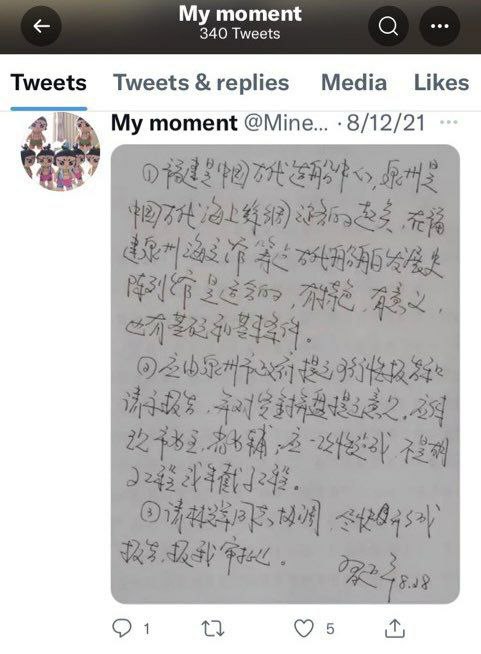 My moment
340 Tweets
Tweets Tweets & replies Media Likes
My moment @Mine... · 8/12/21
①福建是中国古代造船中心,泉州是
中国古代海上丝绸之路的起点,在福
建泉州海交馆筹建古代船舶发展史
陈列馆是适合的,有特色,有意义,
也有基础和基本条件。
②应由泉州市政府提出可行性报告和
请示报告,并对资金提出意见。应
市为主,省为辅,应一次性完成,不是胡
子工程或半截子工程。
③请同志协调,尽快形成
报告,报我审批。
8.28
1 5